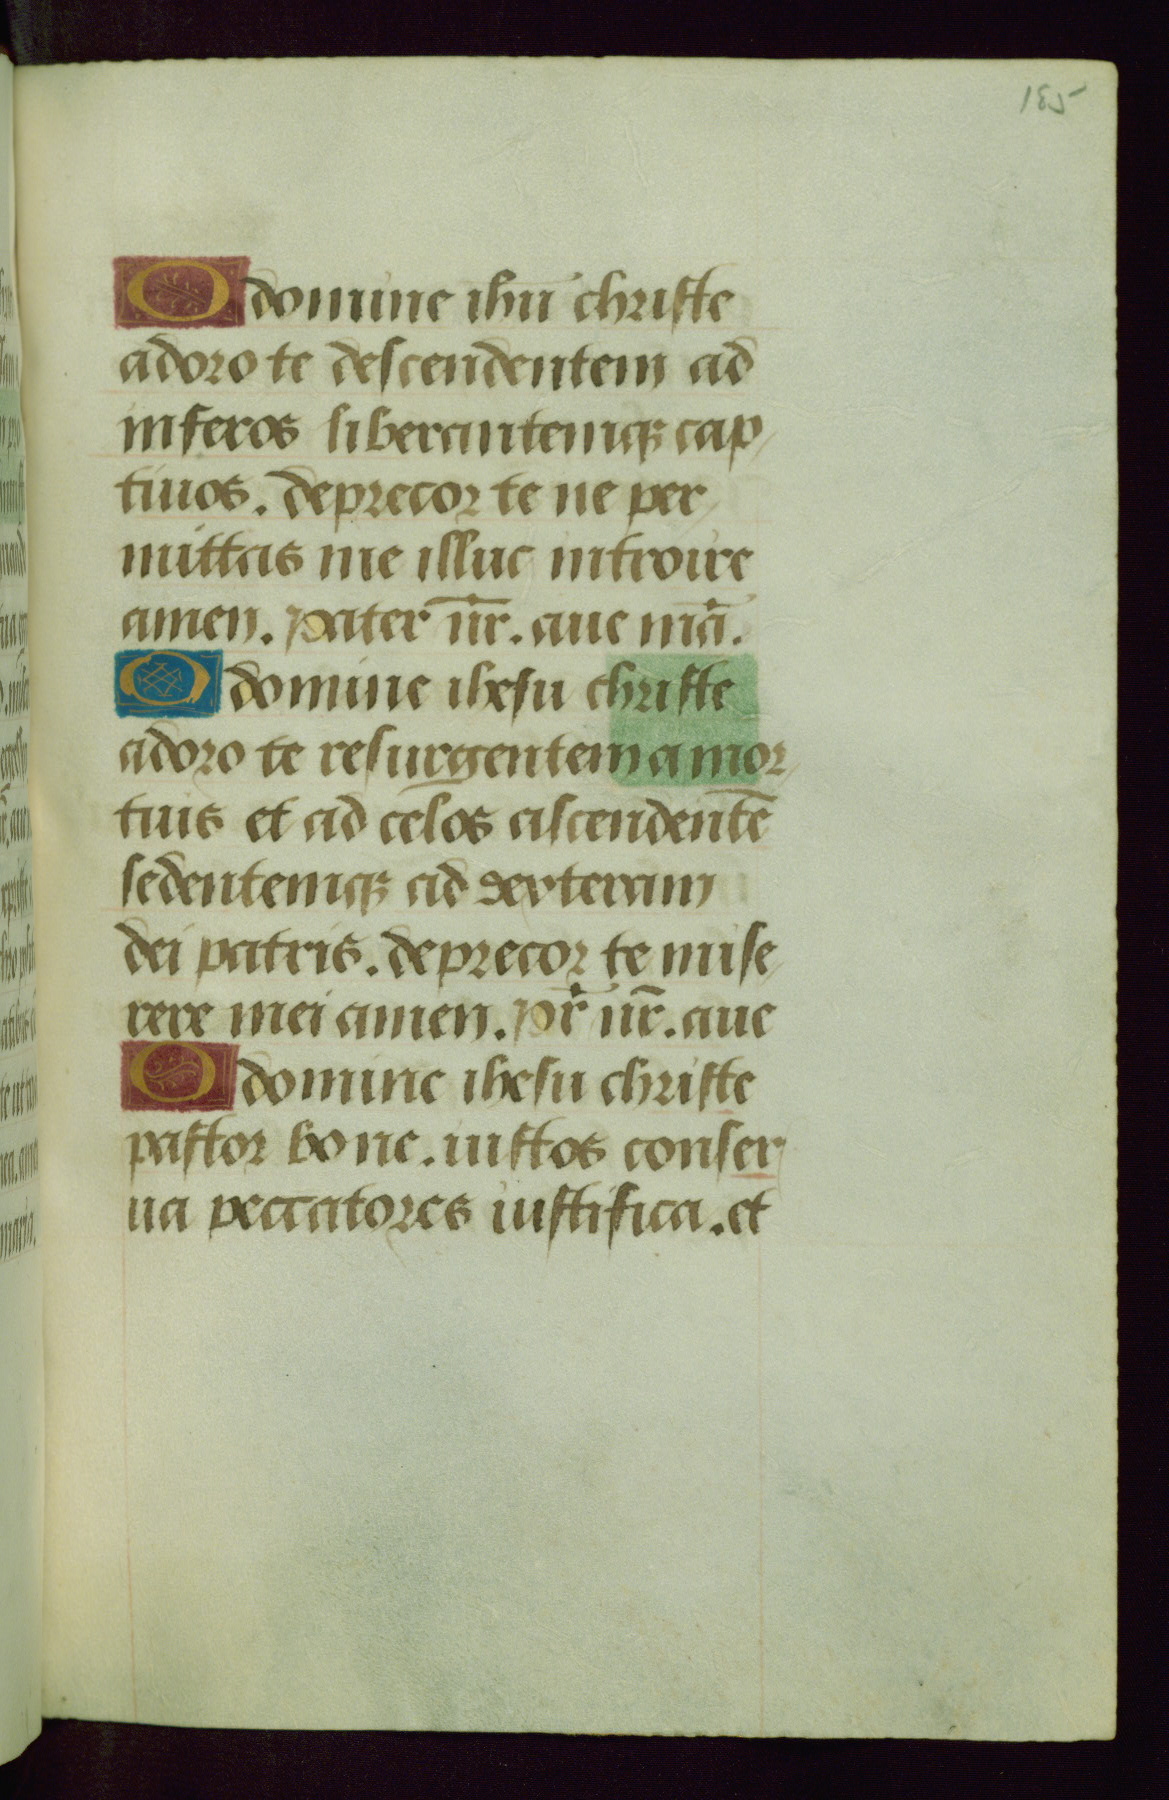 185
O domine ihū christe
adoro te descendentem ad
inferos liberantemqꝫ cap
tiuos. deprecor te ne per
mittas me illuc introire
amen. Pater nr̄. aue mā.
O domine ihesu christe
adoro te resurgentem a mor
tuis et ad celos ascendentē
sedentemqꝫ ad dexteram
dei patris. deprecor te mise
rere mei amen. Pr̄ nr̄. aue
O domine ihesu christe
pastor bone. iustos conser
ua peccatores iustifica. et